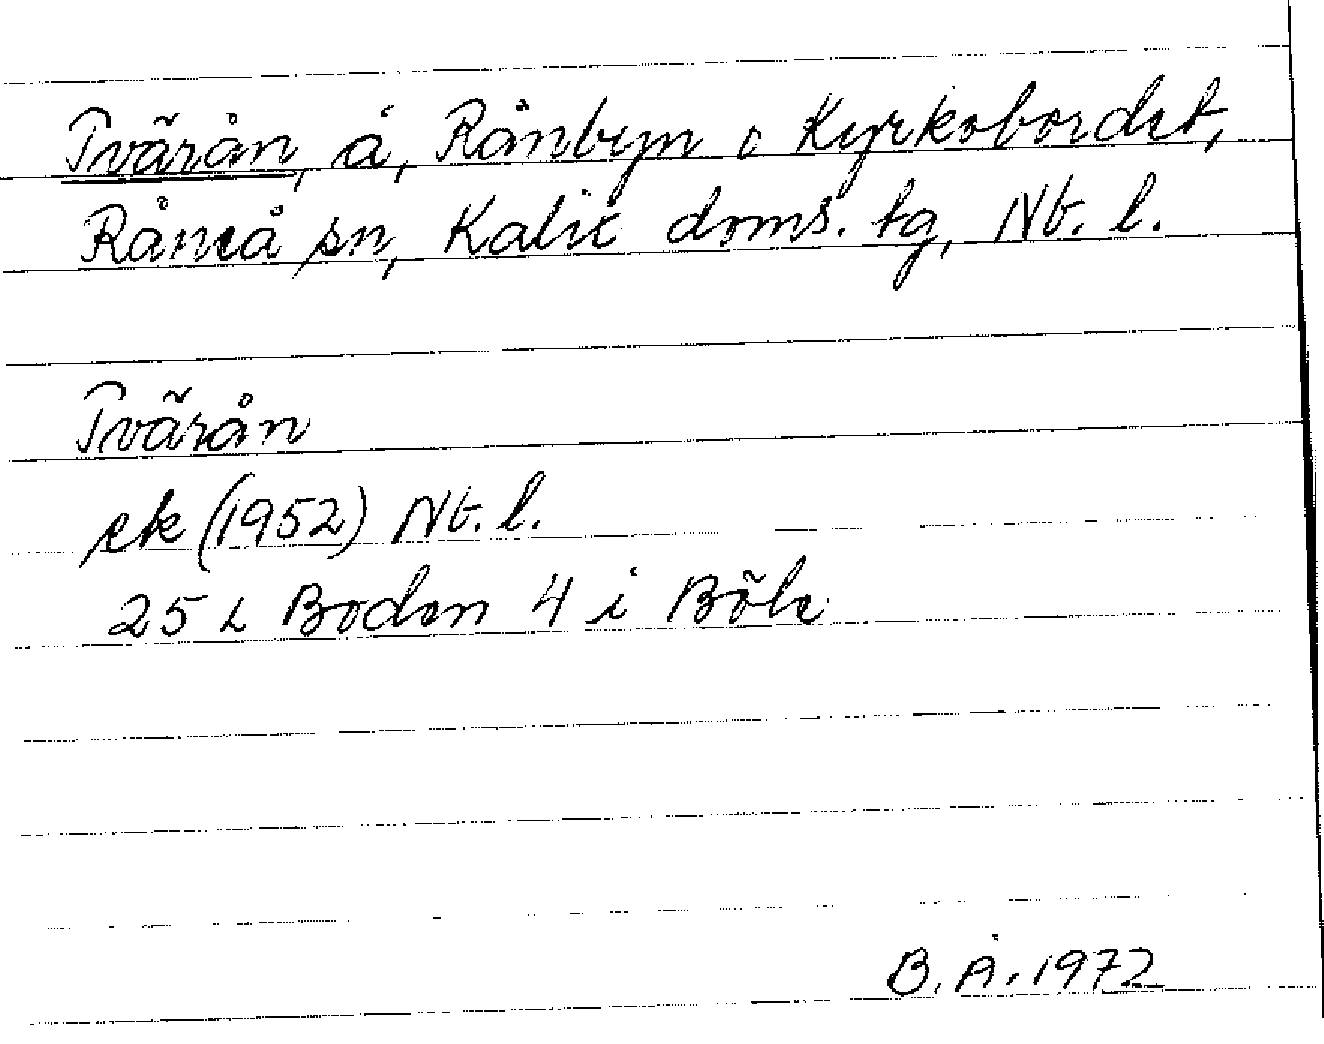 Tvärån, å, Rånbyn o Kyrkobordet,
Råneå sn, Kalix doms. tg, Nb. l.
Tvärån
ek (1952) Nb. l.
25 L Boden 4 i Böle
B. Å. 1972